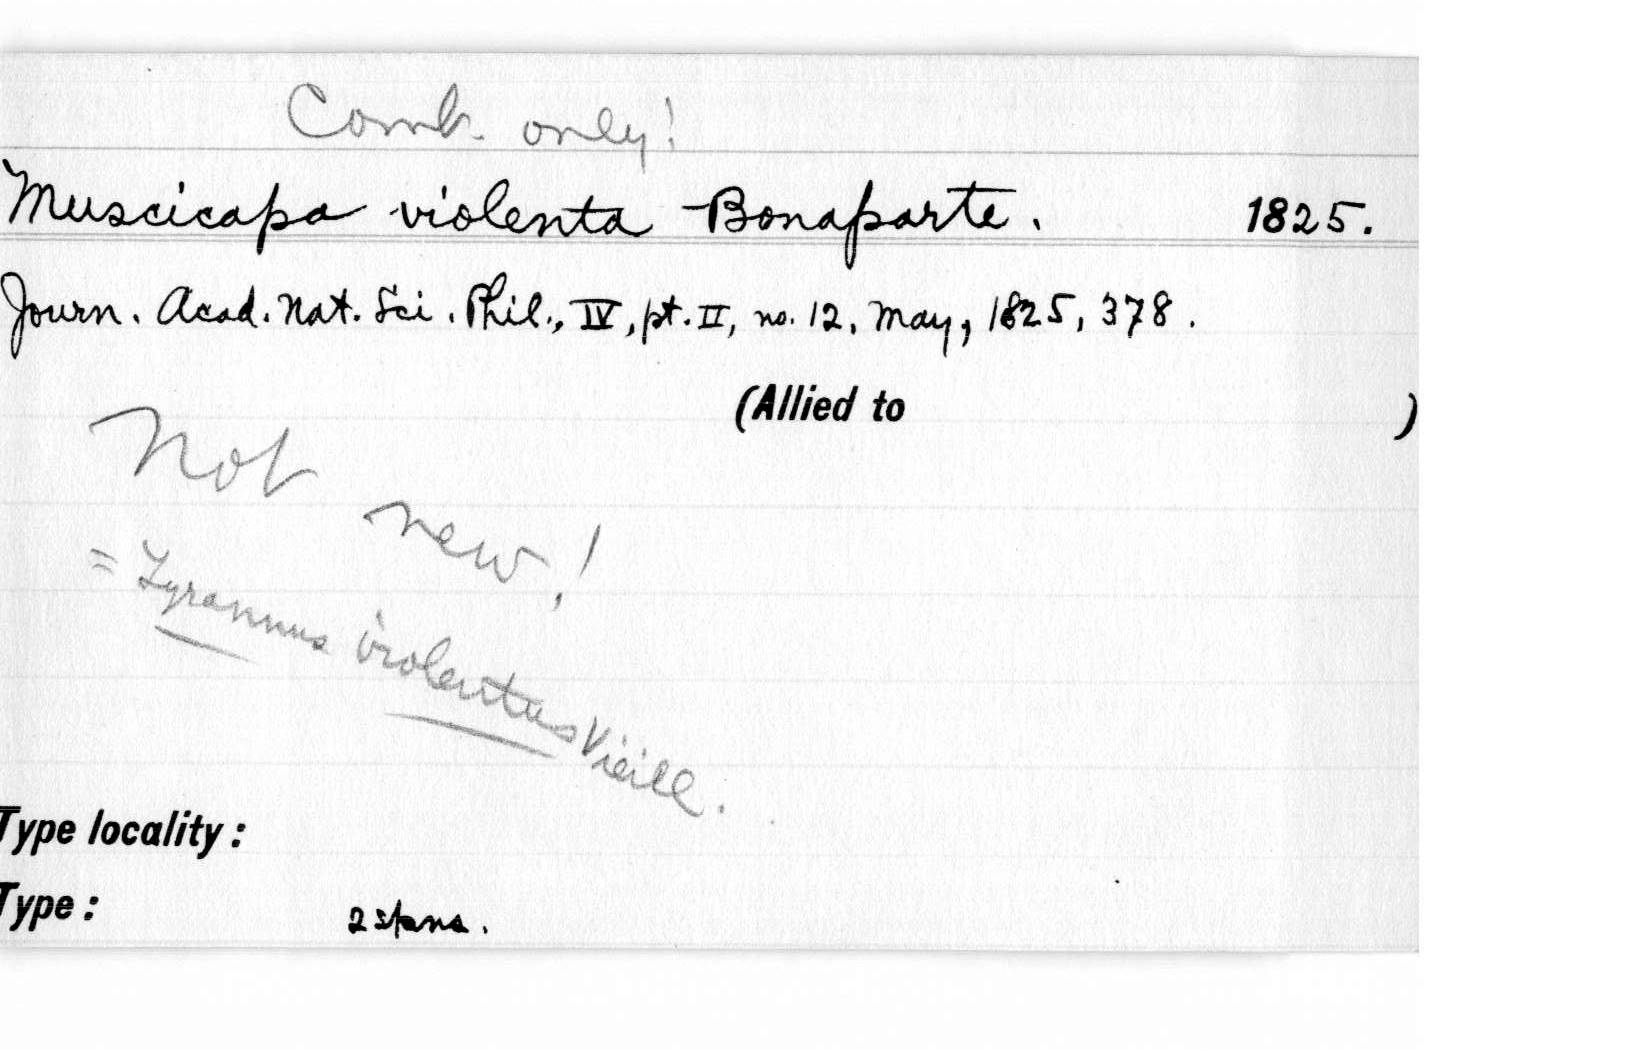 Comb. only!
Muscicapa violenta Bonaparte. 1825.
Journ. Acad. Nat. Sci. Phil., IV, pt. II, no. 12, May, 1825, 378.
(Allied to )
Not new!
= Tyrannus violentus Vieill.
Type locality:
Type: 2 spns.